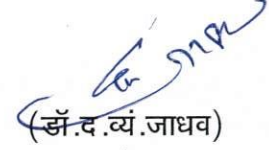 (डॉ.द.व्यं.जाधव)